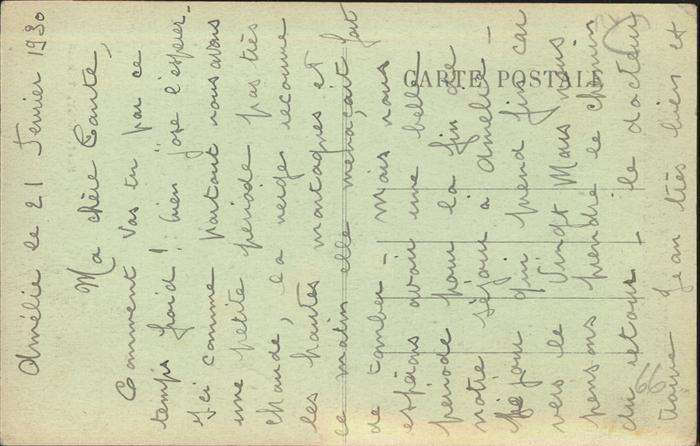 Amélie le 21 Fevrier 1930
Ma chère Tante,
Comment vas tu par ce
temps froid ! bien j'ose l'espérer-
Ici comme partout nous avons
une petite période pas très
chaude, la neige recouvre
les hautes montagnes et
ce matin elle menaçait fort
de tomber - Mais nous
espérons avoir une belle
période pour la fin de
notre séjour à Amélie -
Séjour qui prend fin car
vers le Vingt Mars nous
pensons prendre le chemin
du retour - le docteur
trouve Jean très bien et
CARTE POSTALE
66